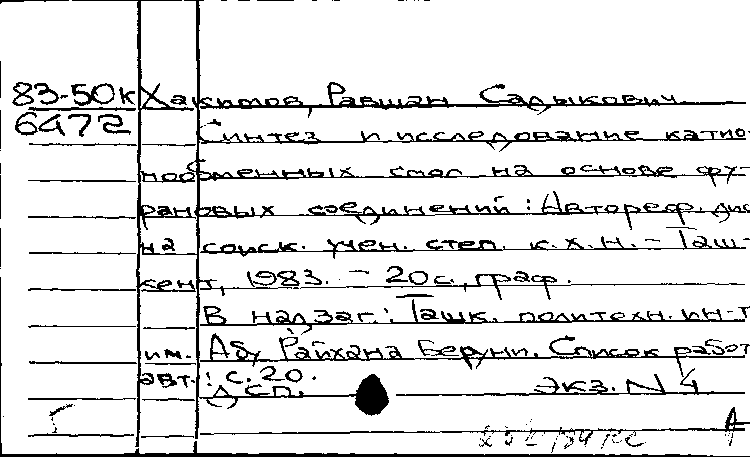 83-50к Хакимов, Равшан Садыкович
6472 Синтез и исследование катио-
нообменных смол на основе фу-
рановых соединений: Автореф. дис
на соиск. учен. степ. к.х.н. - Таш-
кент, 1983. - 20с., граф.
В надзаг.: Ташк. политехн. ин-т
им. Абу Райхана Беруни. Список работ
авт.: с. 20.
ДСП. Экз. N 4